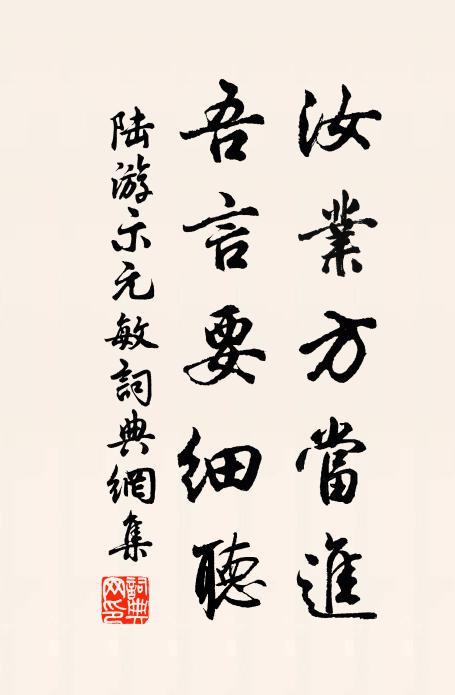 汝業方當進
吾言要細聽
陸游示元敏詞典網集
詞典网印